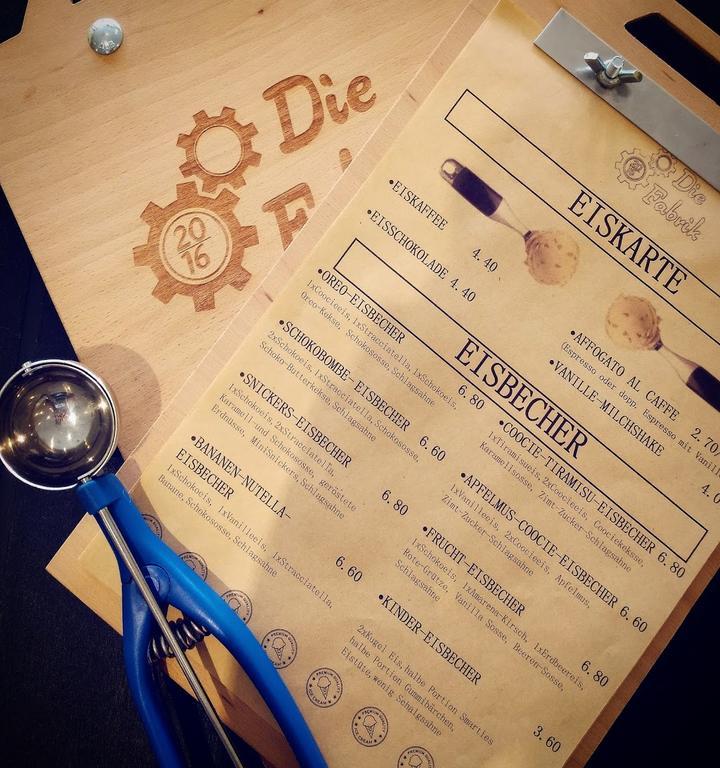 Die
20
16
Die
Fabrik
EISKARTE
•EISKAFFEE 4.40
•EISSCHOKOLADE 4.40
•AFFOGATO AL CAFFE 2.70
(Espresso oder dopp. Espresso mit
•VANILLE-MILCHSHAKE
EISBECHER
•OREO-EISBECHER
1xCoocieeis,1xStracciatella,1xSchokoeis,
Oreo-Kekse, Schokososse,Schlagsahne
6.80
•SCHOKOBOMBE-EISBECHER
2xSchokoeis,1xStracciatella,Schokososse,
Schoko-Butterkekse,Schlagsahne
6.60
•SNICKERS-EISBECHER
1xSchokoeis,2xStracciatella,
Karamell und Schokososse, geröstete
Erdnüsse, MiniSnickers,Schlagsahne
6.80
•BANANEN-NUTELLA-
EISBECHER
1xSchokoeis, 1xVanilleeis, 1xStracciatella,
Banane,Schokososse,Schlagsahne
6.60
•COOCIE-TIRAMISU-EISBECHER
1xTiramisueis,2xCoocieeis, Coociekekse,
Karamellsosse, Zimt-Zucker-Schlagsahne
6.80
•APFELMUS-COOCIE-EISBECHER
1xVanilleeis, 2xCoocieeis, Apfelmus,
Zimt-Zucker-Schlagsahne
6.60
•FRUCHT-EISBECHER
1xSchokoeis, 1xAmarena-Kirsch, 1xErdbeereis,
Rote-Grütze, Vanilla Sosse, Beeren-Sosse,
Schlagsahne
6.80
•KINDER-EISBECHER
2xKugel Eis,halbe Portion Smarties
halbe Portion Gummibärchen,
Eistüte,wenig Schalgsahne
3.60
PREMIUM QUALITY
ICE CREAM
PREMIUM QUALITY
ICE CREAM
PREMIUM QUALITY
ICE CREAM